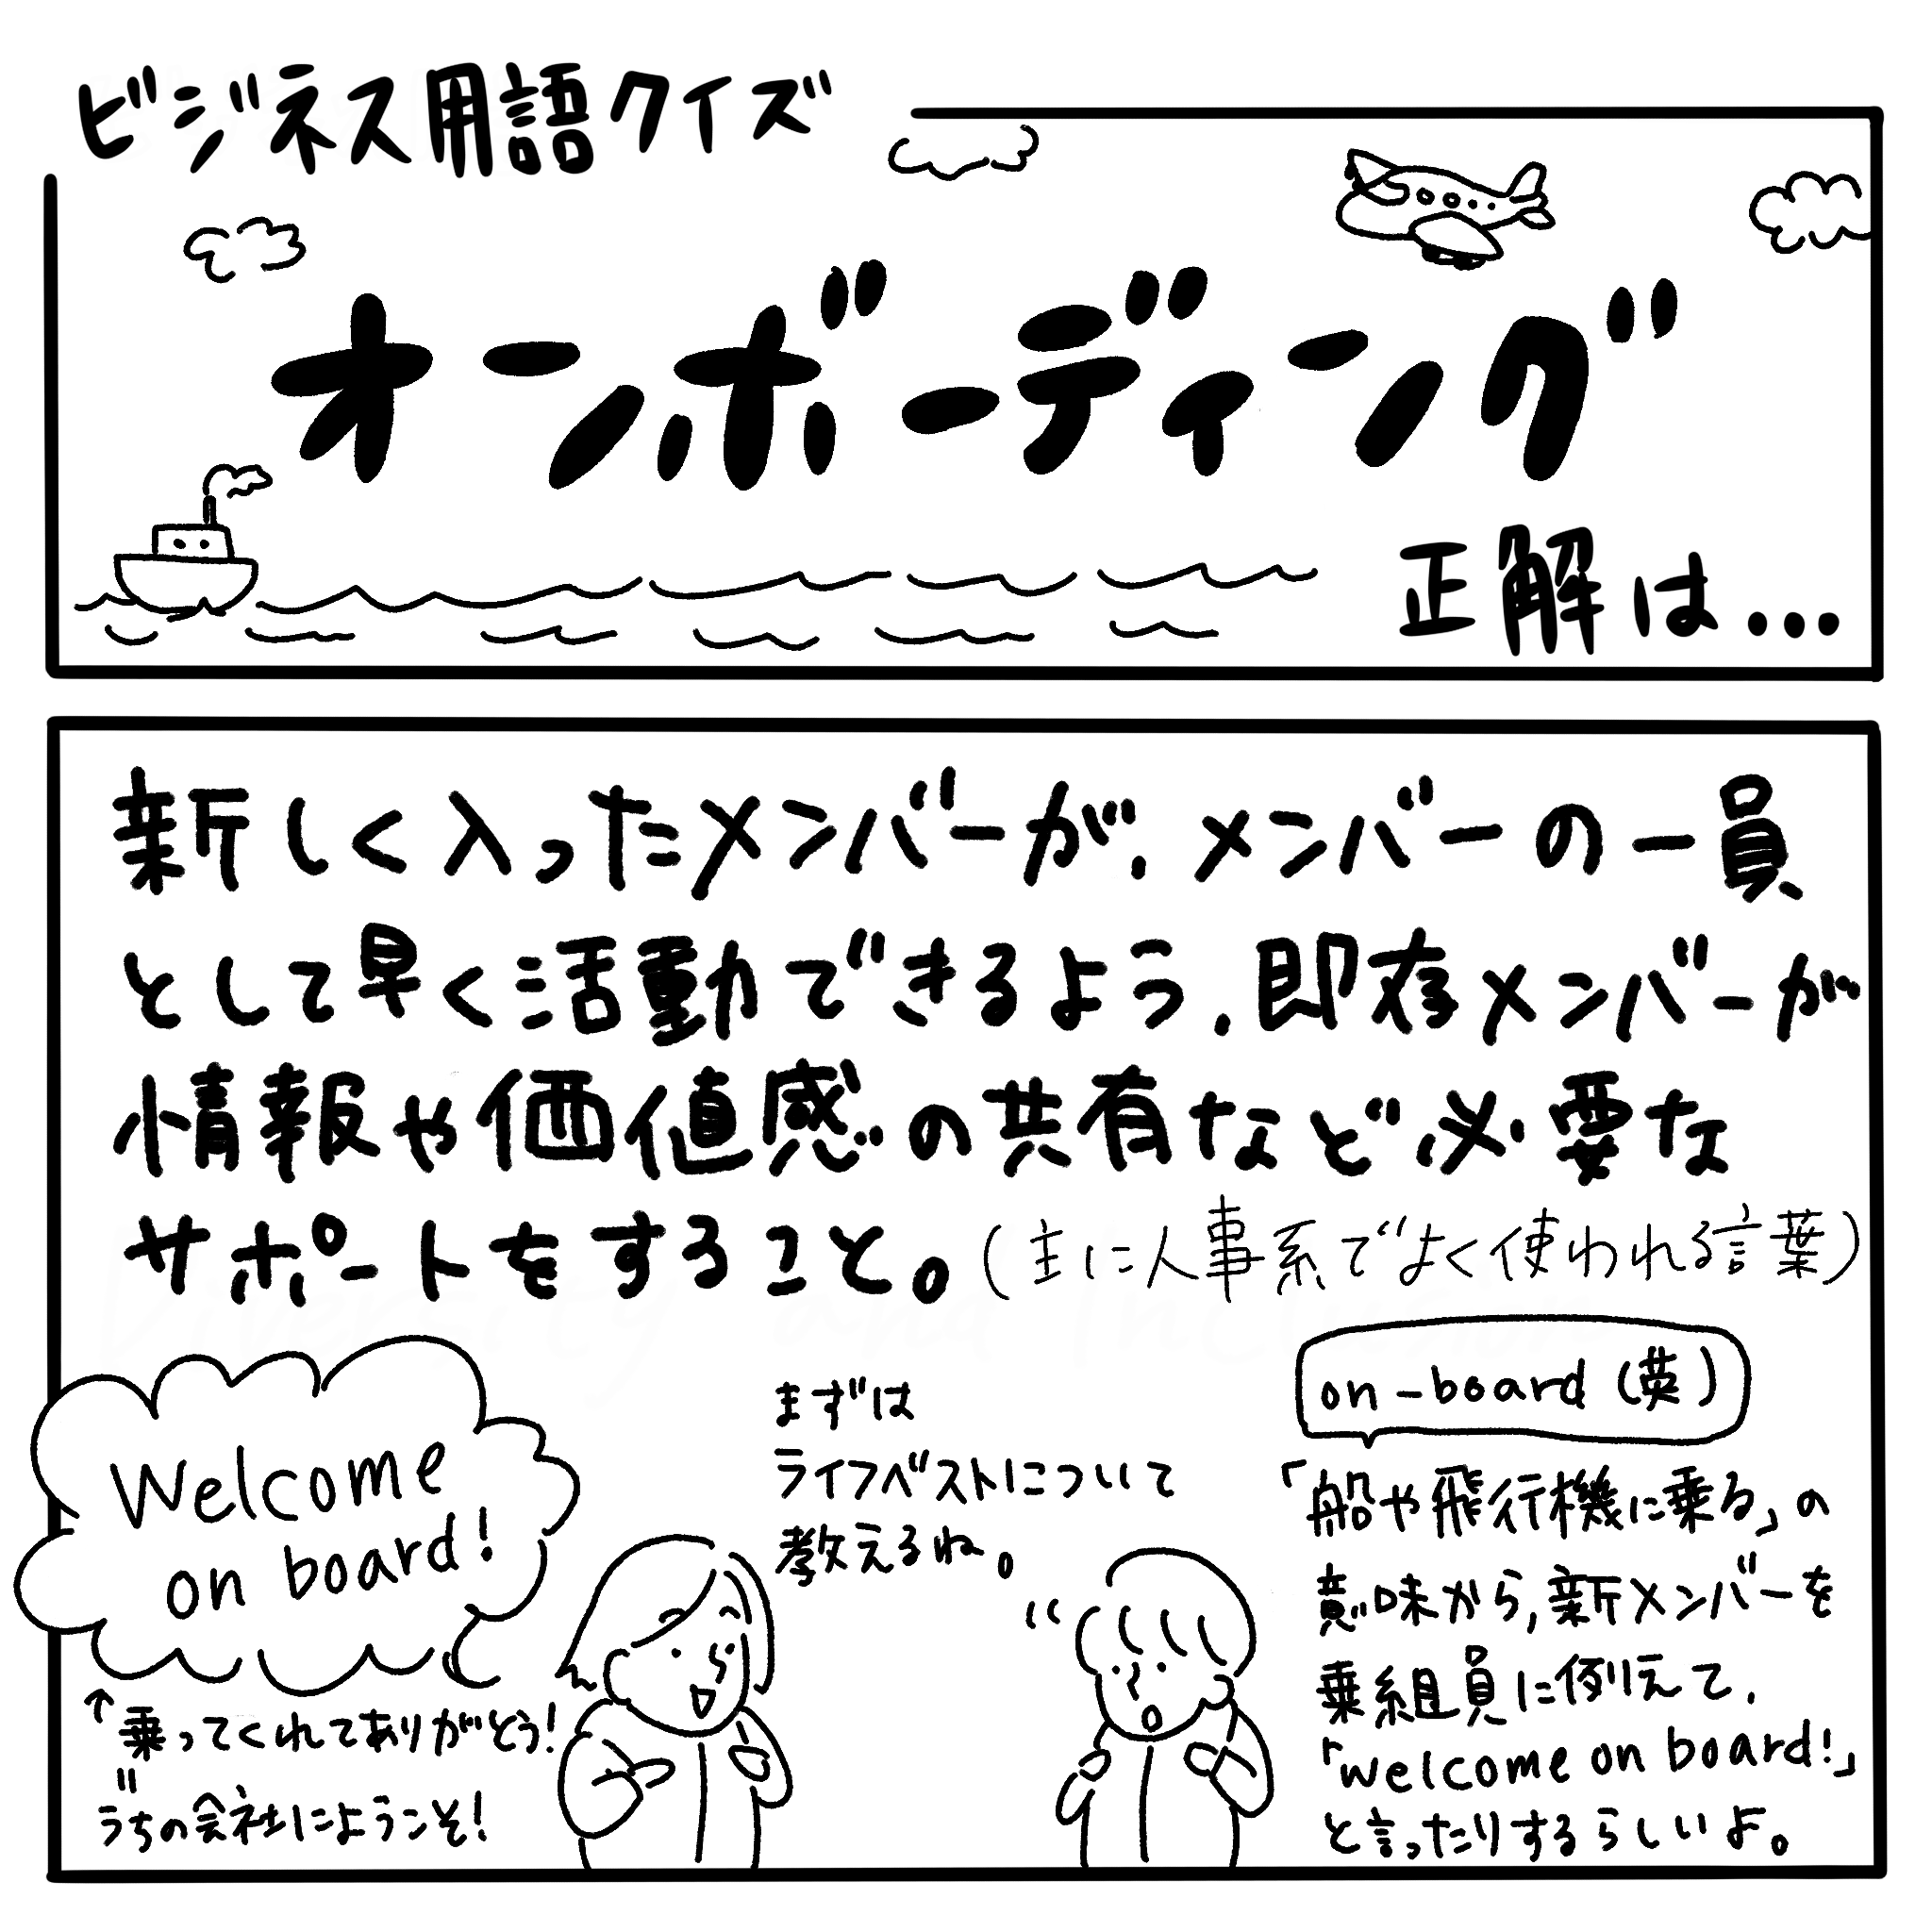 ビジネス用語クイズ
オンボーディング
正解は...
新しく入ったメンバーが、メンバーの一員
として早く活動できるよう、即存メンバーが
情報や価値感の共有など必要な
サポートをすること。(主に人事系でよく使われる言葉)
Welcome
on board!
↑乗ってくれてありがとう!
=
うちの会社にようこそ!
まずは
ライフベストについて
教えるね。
on-board(英)
「船や飛行機に乗る」の
意味から、新メンバーを
乗組員に例えて、
「welcome on board!」
と言ったりするらしいよ。